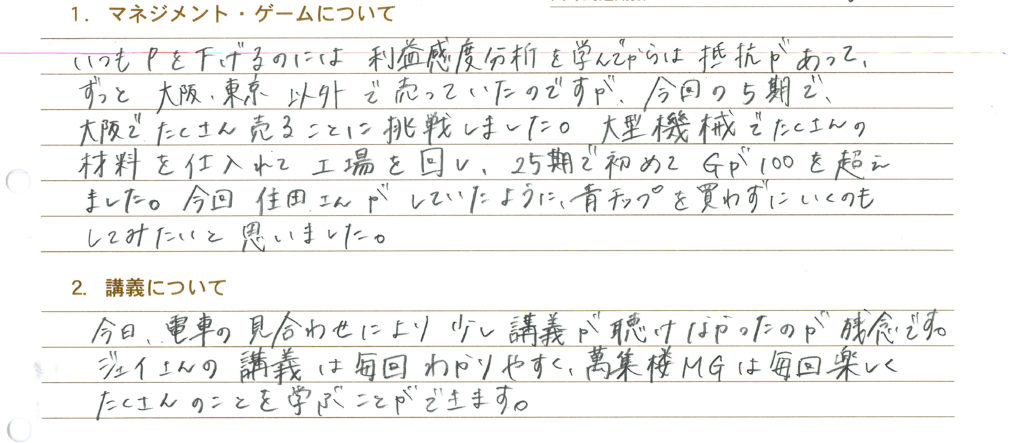 1. マネジメント・ゲームについて
いつもPを下げるのには利益感度分析を学んでからは抵抗があって、
ずっと大阪、東京以外で売っていたのですが、今回の5期で、
大阪でたくさん売ることに挑戦しました。大型機械でたくさんの
材料を仕入れて工場を回し、25期で初めてGが100を超え
ました。今回住田さんがしていたように、青チップを買わずにいくのも
してみたいと思いました。
2. 講義について
今日、電車の見合わせにより少し講義が聴けなかったのが残念です。
ジェイさんの講義は毎回わかりやすく、萬集楼MGは毎回楽しく
たくさんのことを学ぶことができます。